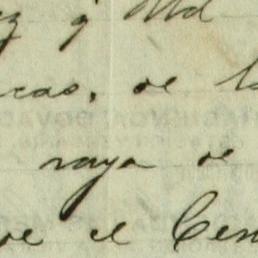 y Md
cas, de la
raya de
ve el Cen